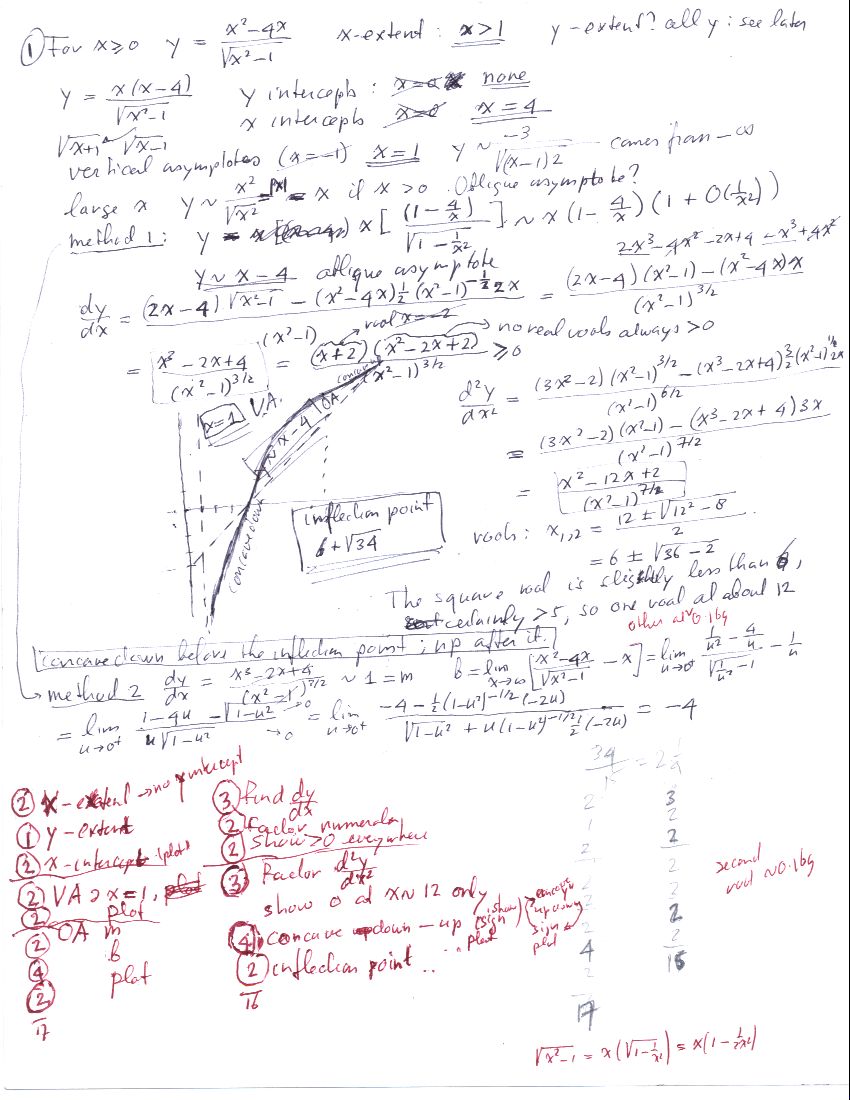 ① For x ≥ 0 y = (x² - 4x)/√(x² - 1) x-extent : x > 1 y-extent? all y : see later
y = x(x - 4)/√(x² - 1) y intercepts : x = 0 none
√(x+1) √(x-1) x intercepts x = 0 x = 4
vertical asymptotes (x = -1) x = 1 y ~ -3/√((x-1)2) comes from -∞
large x y ~ x²/√x² = x if x > 0. Oblique asymptote?
method 1: y = x[(1 - 4/x)/√(1 - 1/x²)] ~ x(1 - 4/x)(1 + O(1/x²))
y ~ x - 4 oblique asymptote
2x³ - 4x² - 2x + 4 - x³ + 4x²
dy/dx = ((2x-4)√(x²-1) - (x²-4x)½(x²-1)^(-1/2) 2x)/(x²-1) = ((2x-4)(x²-1) - (x²-4x)x)/(x²-1)^(3/2)
root x = -2 no real roots always > 0
= (x³ - 2x + 4)/(x²-1)^(3/2) = (x+2)(x² - 2x + 2)/(x²-1)^(3/2) ≥ 0
x = 1 V.A.
y ~ x - 4 OA
concave up
concave down
d²y/dx² = ((3x²-2)(x²-1)^(3/2) - (x³-2x+4)(3/2)(x²-1)^(1/2) 2x)/(x²-1)^(6/2)
= ((3x²-2)(x²-1) - (x³-2x+4)3x)/(x²-1)^(7/2)
= (x² - 12x + 2)/(x²-1)^(7/2)
inflection point
6 + √34
roots: x₁,₂ = (12 ± √(12² - 8))/2
= 6 ± √(36 - 2)
The square root is slightly less than 6,
certainly > 5, so one root at about 12
other at ~0.169
concave down before the inflection point ; up after it.
method 2 dy/dx = (x³ - 2x + 4)/(x² - 1)^(3/2) ~ 1 = m b = lim x→∞ [(x² - 4x)/√(x² - 1) - x] = lim u→0⁺ (1/u² - 4/u)/√(1/u² - 1) - 1/u
= lim u→0⁺ (1 - 4u - √(1-u²))/(u√(1-u²)) →0 →0 = lim u→0⁺ (-4 - ½(1-u²)^(-1/2)(-2u))/(√(1-u²) + u(1-u²)^(-1/2)½(-2u)) = -4
② x-extent → no y intercept
① y-extent
② x-intercept (plot)
② VA @ x = 1,
② plot
OA
② m
④ b
② plot
17
③ find dy/dx
② factor numerator
② show > 0 everywhere
③ Factor d²y/dx²
show 0 at x ~ 12 only
④ concave down - up (show sign) plot
② inflection point ..
16
concave up / down
sign
plot
34/ = 2 1/9
2
1
2
4
2
17
3
2
2
2
2
2
2
15
second root ~0.169
√(x²-1) = x(√(1 - 1/x²)) = x(1 - 1/2x²)